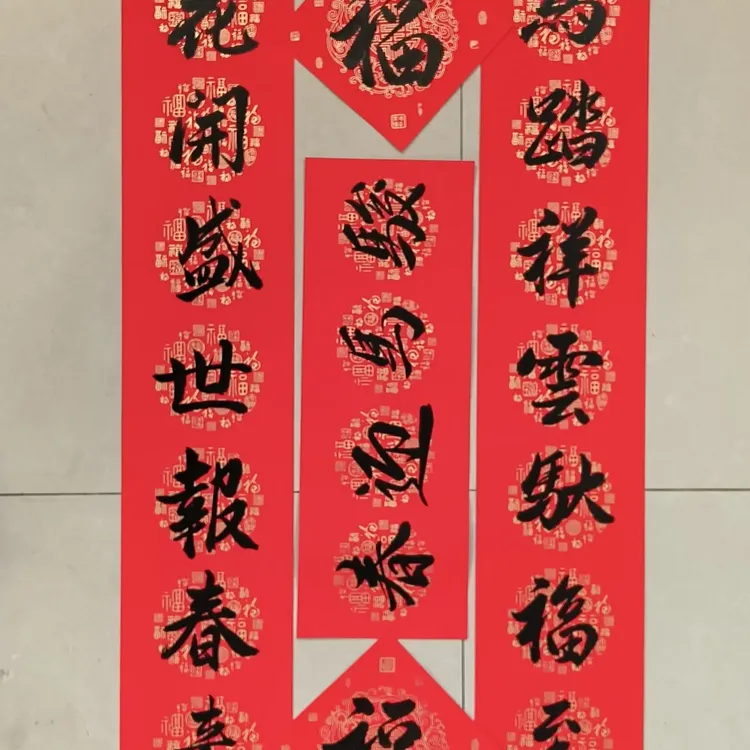 馬踏祥雲馱福至
福
駿馬迎春
福
花開盛世報春